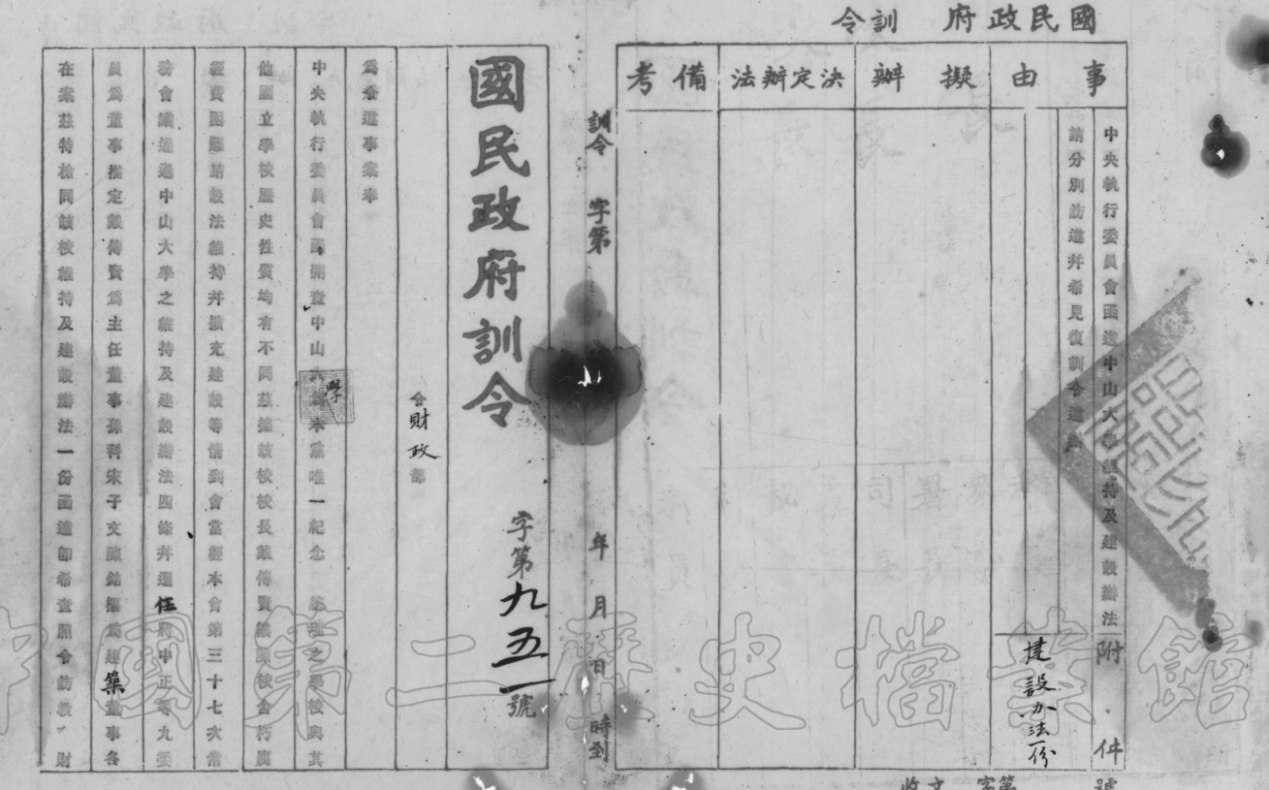 國民政府 訓令
事由
擬辦
決定辦法
備考
中央執行委員會函送中山大學維持及建設辦法
請分別飭遵并希見復訓令遵
附件
建設办法一份
訓令 字第 年 月 日 時到
國民政府訓令
字第九五一號
令財政部
為令遵事案奉
中央執行委員會函開查中山大學本黨唯一紀念 總理之學校與其
他國立學校歷史性質均有不同茲據該校校長戴傳賢維陳校舍朽腐
經費困難請設法維持并擴充建設等情到會當經本會第三十七次常
務會議通過中山大學之維持及建設辦法四條并選任蔣中正等九委
員為董事推定戴傳賢為主任董事孫科宋子文陳銘樞為建築董事各
在案茲特檢同該校維持及建設辦法一份函達即希查照令飭教、財
收文 字第 號
中國第二歷史檔案館